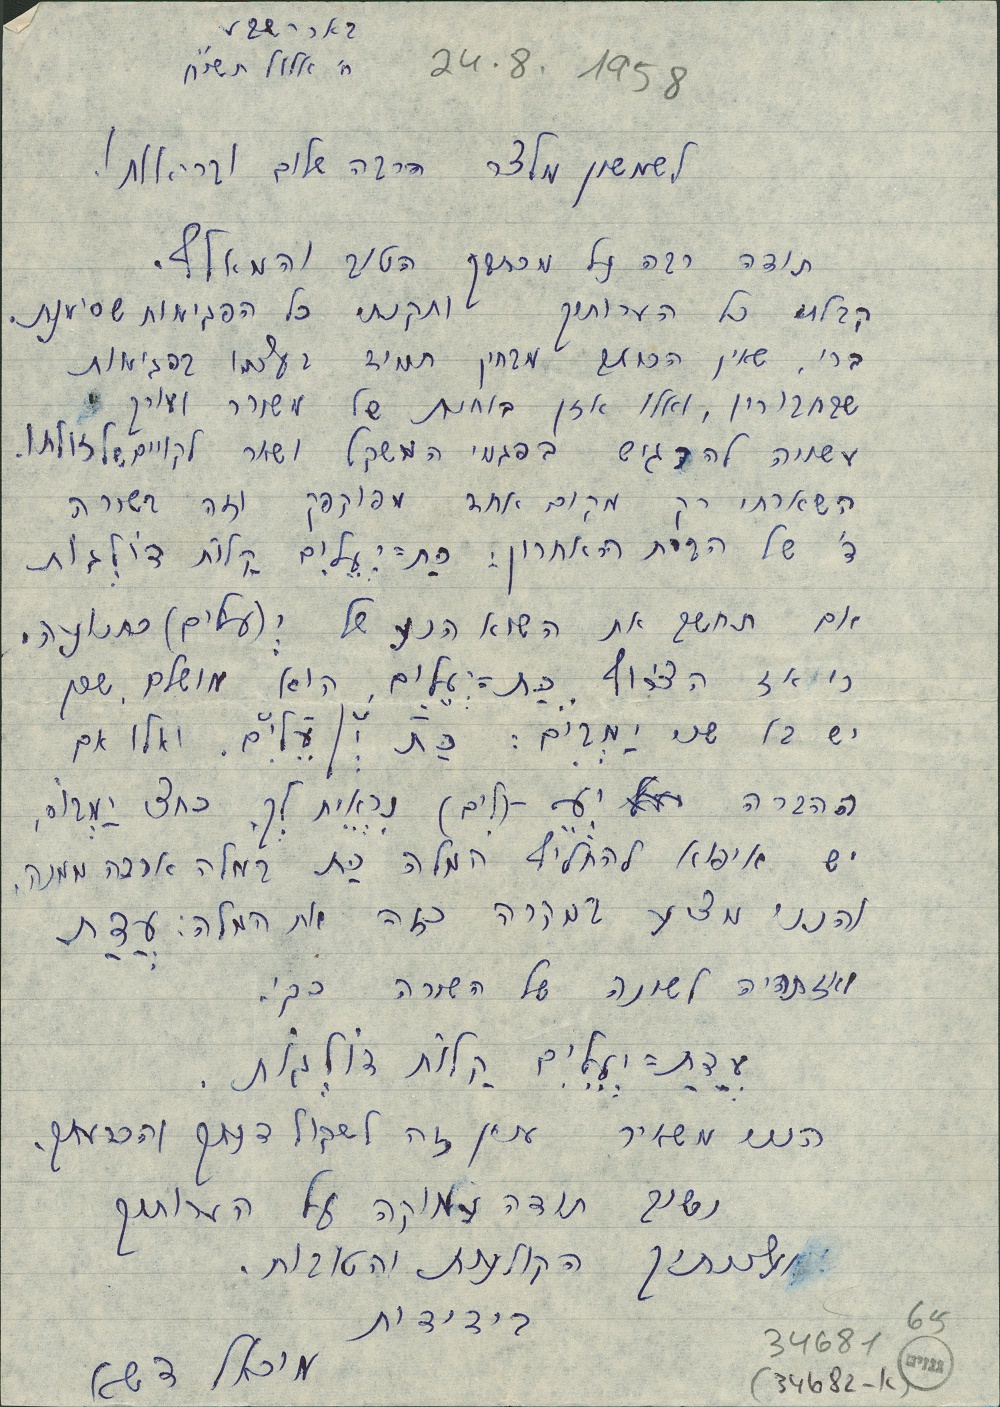 באר־שבע
ה' אלול תשי"ח 24.8.1958
לשמשון מלצר הרבה שלום ובריאות!
תודה רבה על מכתבך הטוב והמאלף.
קבלתי כל הערותיך ותקנתי כל הפגימות שסימנת.
ברי, שאין הכותב מבחין תמיד בעצמו בפגימות
שבחבוריו, ואלו אזן בוחנת של משורר ועורך
עשויה להרגיש בפגמי המשקל ושאר לקויים של זולתו.
השארתי רק מקום אחד מפוקפק וזה בשורה
ד' של הבית האחרון: כַּת=יְעֵלִים קַלּוֹת דּוֹלְגוֹת
אם תחשב את השוא הנע של יְ(עלים) כתנועה,
כי אז הצרוף כַּת=יְעֵלִים, הוא מושלם, שכן
יש בו שני יַמְבִּים: כַּת יְ/עֵלִים. ואלו אם
ההברה יְעֵ–(לִים) נִרְאֵית לְךָ כחצי יַמְבּוֹס,
יש איפוא להחליף המלה כַּת במלה ארכה ממנה,
והנני מציע במקרה כזה את המלה: עֲדַת
ואז תהיה לשונה של השורה כך:
עֲדַת=יְעֵלִים קַלּוֹת דּוֹלְגוֹת.
הנני משאיר ענין זה לשקול דעתך והכרעתך.
ושוב תודה עמוקה על הערותיך
ועצותיך הקולעות והטובות.
בידידות
מיכאל דשא
65
34681
(34682-א)
גנזים